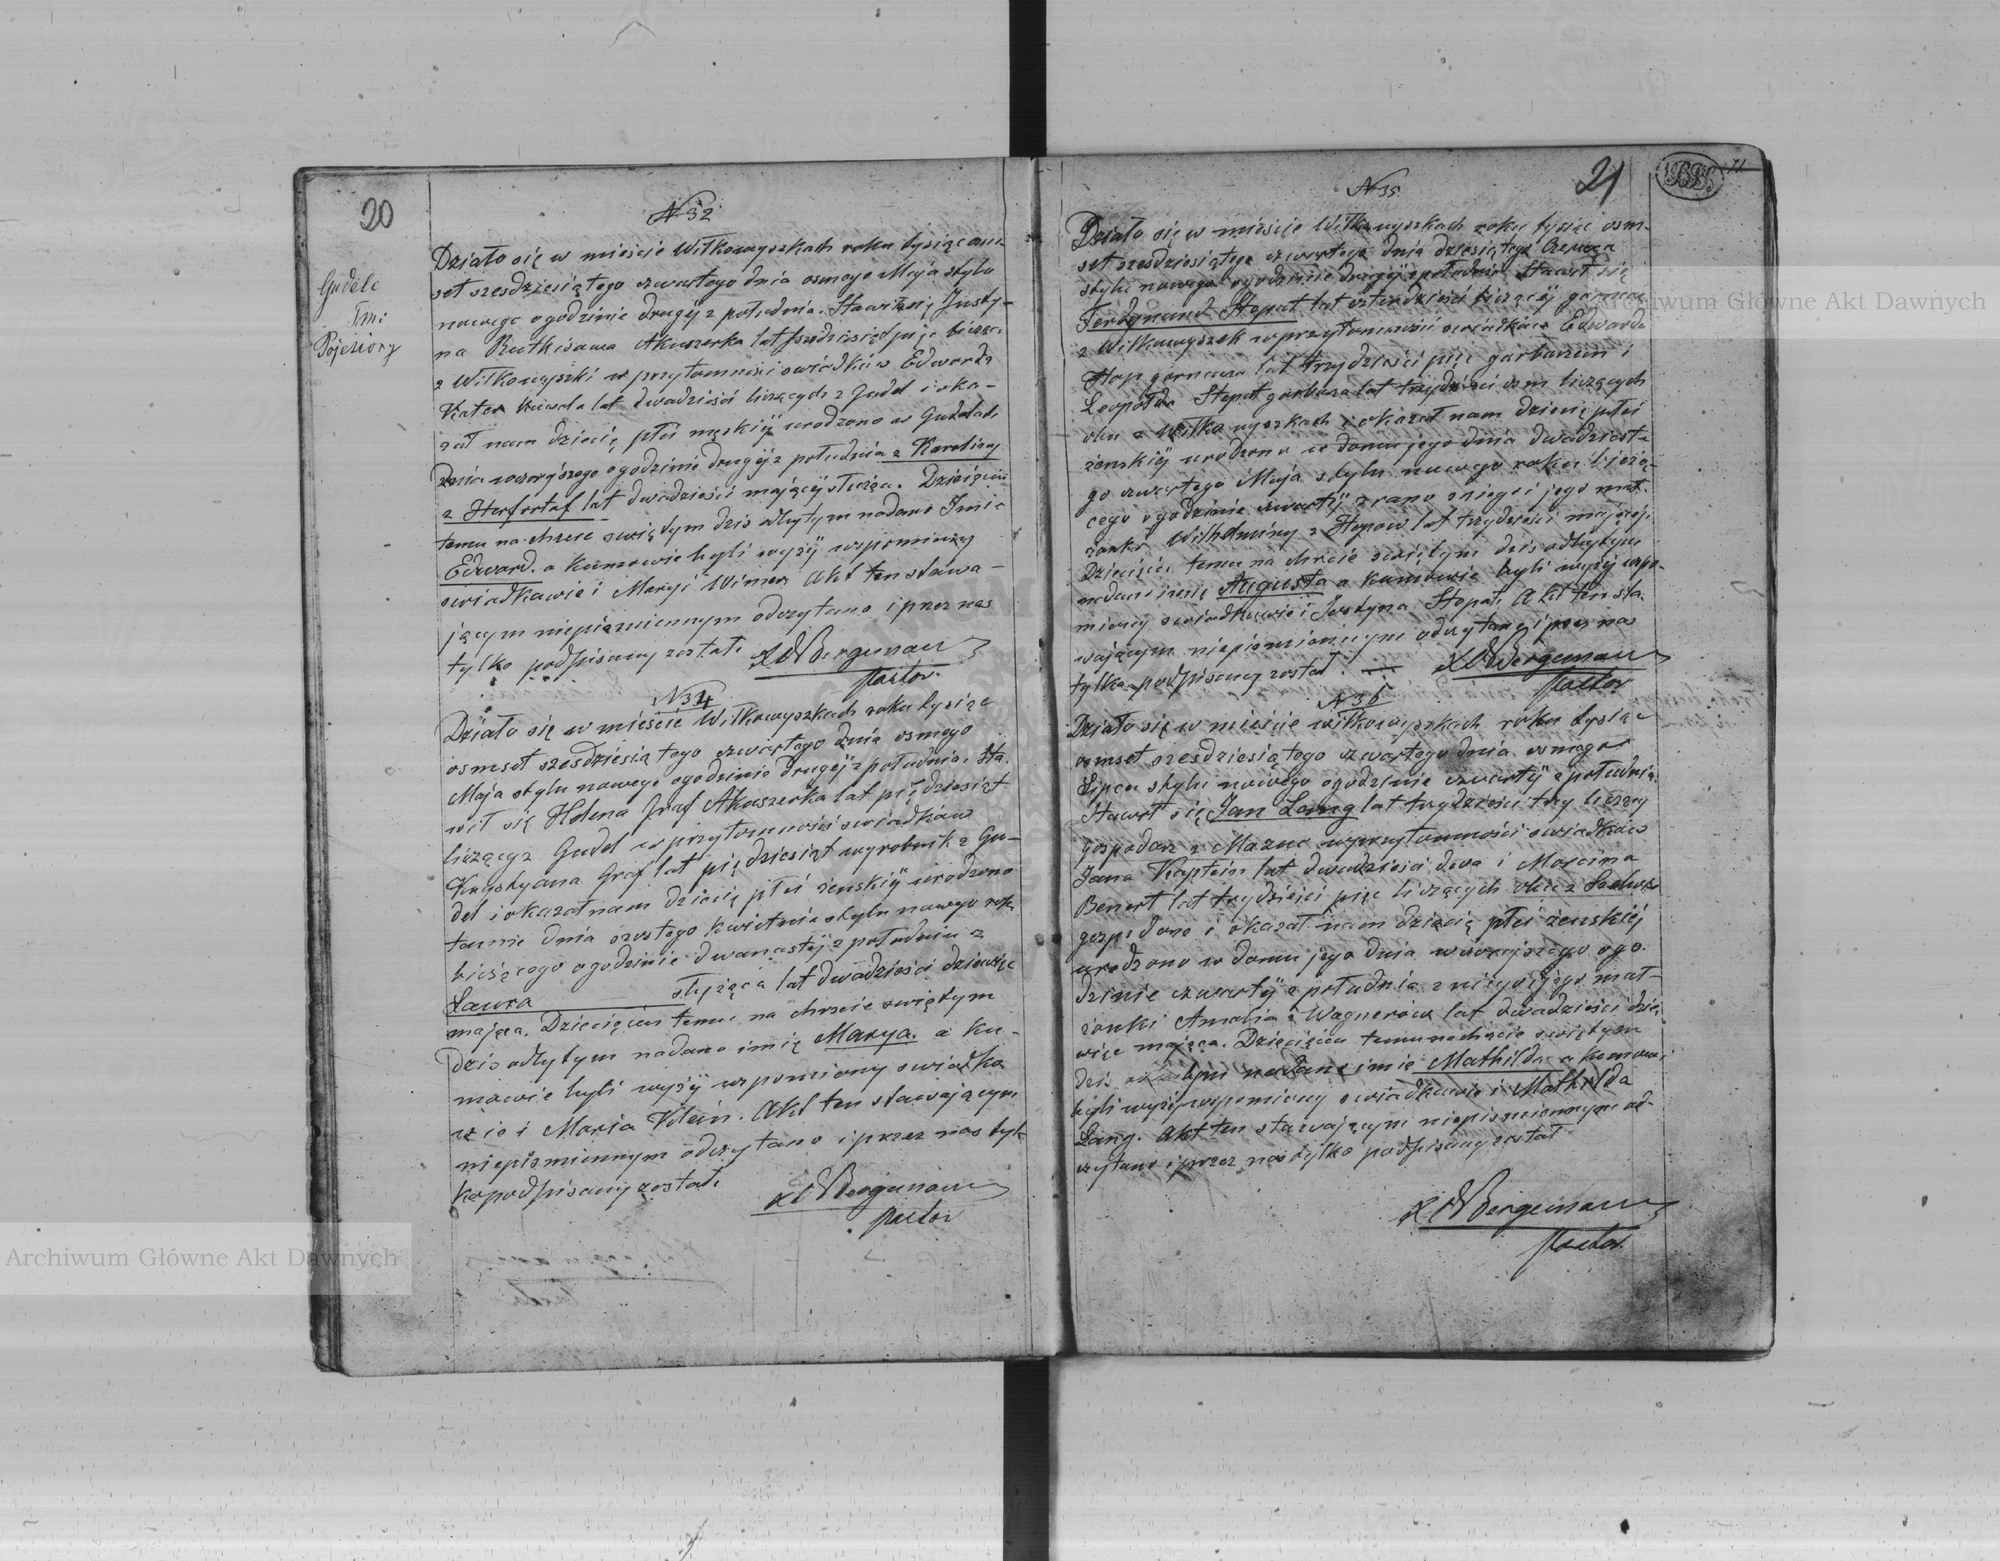 20
Gudele
Gm:
Pojeziory
N 32
Działo się w mieście Wiłkowyszkach roku tysiąc ośm-
set szesdziesiątego czwartego dnia osmego Maja stylu
nowego o godzinie drugiéj z południa. Stawiła się Justy-
na Akuszerka lat
z Wiłkowyszki w przytomności świadków Edwarda
lat dwadzieści liczących z Gudel i oka-
zał nam dziecię płci męskiéj urodzone w Gudelach
dnia wczorajszego o godzinie drugiéj z południa z Karoliny
z Herfortof lat dwadzieści mającéj służąca. Dziecięciu
temu na chrzcie świętym dzis odbytym nadano Imie
Edward. a kumowie byli wyżéj wspomnieny
swiadkowie i Maryi Wimer Akt ten stawa-
jącym niepismiennym odczytano i przez nas
tylko podpisany został.
Bergemann
Pastor.
N 34
Działo się w mieście Wiłkowyszkach roku tysiąc
osmset szesdziesiątego czwartego dnia osmego
Maja stylu nowego o godzinie drugiéj z południa. Sta-
wił się Helena Graf Akuszerka lat pięćdziesiąt
licząca z Gudel w przytomności swiadków
Krystyana Graf lat pięćdziesiąt wyrobnik z Gu-
del i okazał nam dziecię płci żenskiéj urodzone
tamie dnia szostego kwietnia stylu nowego rok
bieżącego o godzinie dwanastéj z południa z
Laura służąca lat dwadzieści dziewięć
mająca. Dziecięciu temu na chrzcie świętym
dzis odbytym nadano imię Marya. a ku-
mowie byli wyżéj wspomiony swiadko
wie i Maria Klein. Akt ten stawającym
niepismiennym odczytano i przez nas tyl-
ko podpisany został.
Bergemann
Pastor
21
N 35
Działo się w mieście Wiłkowyszkach roku tysiąc osm-
set szesdziesiątego czwartego dnia dziesiątego Czerwca
stylu nowego o godzinie drugiéj z południa Stawił się
Ferdynand Stopat lat czterdzieści liczącéj garncarz
z Wiłkowyszek w przytomności swiadków Edwarda
Stop garncarza lat trzydzieści pięć garbarzem i
Leopolda Stopat garbarza lat trzydzieści osm liczących
obu z Wiłkowyszkach i okazał nam dziecię płci
żenskiéj urodzone w domu jego dnia dwadziest-
go czwartego Maja stylu nowego roku bieżą-
cego o godzinie czwartéj z rana z niego i jego mał-
żonki Wilhelminy z lat trzydzieści mającéj.
Dziecięciu temu na chrzcie świętym dzis odbytym
nadano imię Augusta a kumowie byli wyżéj wspo-
miony swiadkowie i Justyna Stopat. Akt ten sta-
wającym niepismiennym odczytano i przez nas
tylko podpisany został.
Bergemann
Pastor
N 36
Działo się w mieście Wiłkowyszkach roku tysiąc
osmset szesdziesiątego czwartego dnia osmego
Lipca stylu nowego o godzinie czwartéj z południa.
Stawił się Jan Lang lat trzydzieści trzy liczący
gospodarz z w przytomności swiadków
Jana Kaptein lat dwadzieści dwa i Marcina
Benert lat trzydzieści pięć liczących obu z
gospodarze i okazał nam dziecię płci żenskiéj
urodzone w domu jego dnia wczorajszego o go-
dzinie czwartéj z południa z niego i jego mał-
żonki Amalia z Wagnerów lat dwadzieści dzie-
więć mająca. Dziecięciu temu na chrzcie świętym
dzis odbytym nadano imie Mathilda a kumowie
byli wyżéj wspomiony swiadkowie i Mathilda
Lang. Akt ten stawającym niepismiennym od-
czytano i przez nas tylko podpisany został
Bergemann
Pastor.
Archiwum Główne Akt Dawnych
Archiwum Główne Akt Dawnych